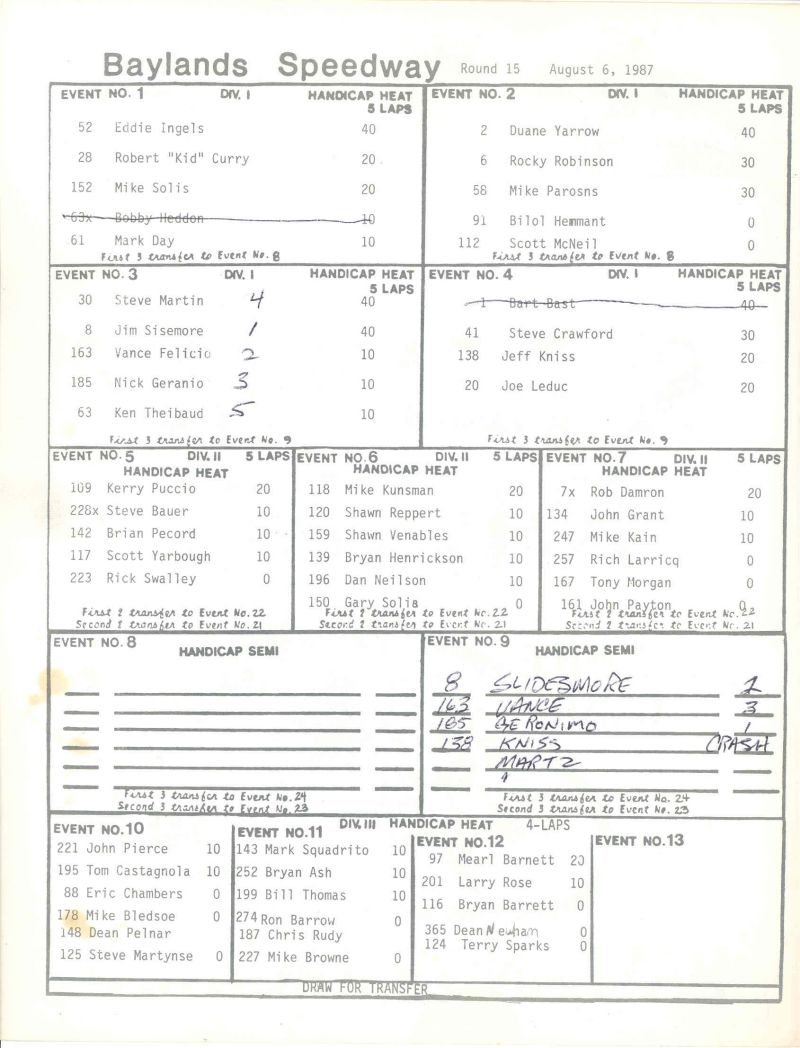 Baylands Speedway Round 15 August 6, 1987
EVENT NO. 1 DIV. I HANDICAP HEAT
5 LAPS
52 Eddie Ingels 40
28 Robert "Kid" Curry 20
152 Mike Solis 20
63x Bobby Heddon 10
61 Mark Day 10
First 3 transfer to Event No. 8
EVENT NO. 2 DIV. I HANDICAP HEAT
5 LAPS
2 Duane Yarrow 40
6 Rocky Robinson 30
58 Mike Parosns 30
91 Bilol Hemmant 0
112 Scott McNeil 0
First 3 transfer to Event No. 8
EVENT NO. 3 DIV. I HANDICAP HEAT
5 LAPS
30 Steve Martin 4 40
8 Jim Sisemore 1 40
163 Vance Felicio 2 10
185 Nick Geranio 3 10
63 Ken Theibaud 5 10
First 3 transfer to Event No. 9
EVENT NO. 4 DIV. I HANDICAP HEAT
5 LAPS
1 Bart Bast 40
41 Steve Crawford 30
138 Jeff Kniss 20
20 Joe Leduc 20
First 3 transfer to Event No. 9
EVENT NO. 5 DIV. II 5 LAPS
HANDICAP HEAT
109 Kerry Puccio 20
228x Steve Bauer 10
142 Brian Pecord 10
117 Scott Yarbough 10
223 Rick Swalley 0
First 2 transfer to Event No. 22
Second 2 transfer to Event No. 21
EVENT NO. 6 DIV. II 5 LAPS
HANDICAP HEAT
118 Mike Kunsman 20
120 Shawn Reppert 10
159 Shawn Venables 10
139 Bryan Henrickson 10
196 Dan Neilson 10
150 Gary Solia 0
First 2 transfer to Event No. 22
Second 2 transfer to Event No. 21
EVENT NO. 7 DIV. II 5 LAPS
HANDICAP HEAT
7x Rob Damron 20
134 John Grant 10
247 Mike Kain 10
257 Rich Larricq 0
167 Tony Morgan 0
161 John Payton 0
First 2 transfer to Event No. 22
Second 2 transfer to Event No. 21
EVENT NO. 8
HANDICAP SEMI
First 3 transfer to Event No. 24
Second 3 transfer to Event No. 23
EVENT NO. 9
HANDICAP SEMI
8 SLIDESMORE 2
163 VANCE 3
185 GERONIMO 1
138 KNISS CRASH
MARTZ
First 3 transfer to Event No. 24
Second 3 transfer to Event No. 23
DIV. III HANDICAP HEAT 4-LAPS
EVENT NO. 10
221 John Pierce 10
195 Tom Castagnola 10
88 Eric Chambers 0
178 Mike Bledsoe 0
148 Dean Pelnar
125 Steve Martynse 0
EVENT NO. 11
143 Mark Squadrito 10
252 Bryan Ash 10
199 Bill Thomas 10
274 Ron Barrow 0
187 Chris Rudy
227 Mike Browne 0
EVENT NO. 12
97 Mearl Barnett 20
201 Larry Rose 10
116 Bryan Barrett 0
365 Dean Neuham 0
124 Terry Sparks 0
EVENT NO. 13
DRAW FOR TRANSFER